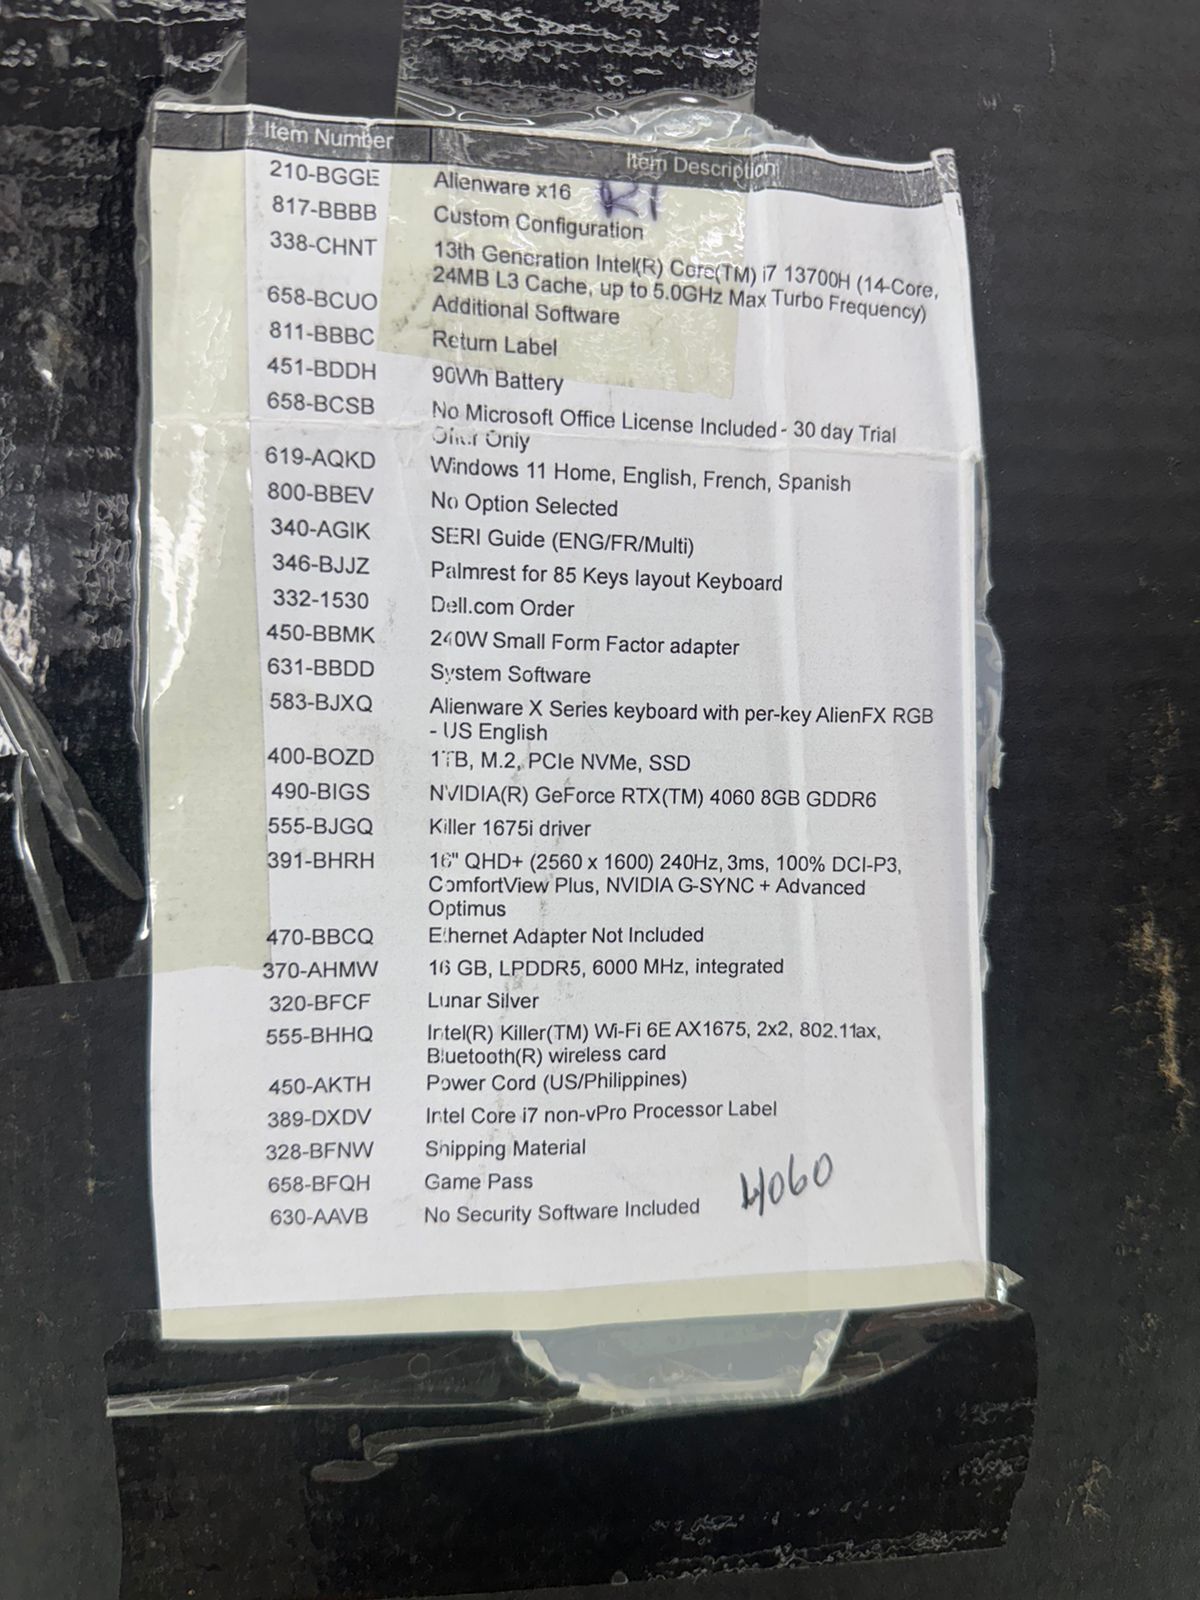 Item Number Item Description
210-BGGE Alienware x16 R1
817-BBBB Custom Configuration
338-CHNT 13th Generation Intel(R) Core(TM) i7 13700H (14-Core,
24MB L3 Cache, up to 5.0GHz Max Turbo Frequency)
658-BCUO Additional Software
811-BBBC Return Label
451-BDDH 90Wh Battery
658-BCSB No Microsoft Office License Included - 30 day Trial
Offer Only
619-AQKD Windows 11 Home, English, French, Spanish
800-BBEV No Option Selected
340-AGIK SERI Guide (ENG/FR/Multi)
346-BJJZ Palmrest for 85 Keys layout Keyboard
332-1530 Dell.com Order
450-BBMK 240W Small Form Factor adapter
631-BBDD System Software
583-BJXQ Alienware X Series keyboard with per-key AlienFX RGB
- US English
400-BOZD 1TB, M.2, PCIe NVMe, SSD
490-BIGS NVIDIA(R) GeForce RTX(TM) 4060 8GB GDDR6
555-BJGQ Killer 1675i driver
391-BHRH 16" QHD+ (2560 x 1600) 240Hz, 3ms, 100% DCI-P3,
ComfortView Plus, NVIDIA G-SYNC + Advanced
Optimus
470-BBCQ Ethernet Adapter Not Included
370-AHMW 16 GB, LPDDR5, 6000 MHz, integrated
320-BFCF Lunar Silver
555-BHHQ Intel(R) Killer(TM) Wi-Fi 6E AX1675, 2x2, 802.11ax,
Bluetooth(R) wireless card
450-AKTH Power Cord (US/Philippines)
389-DXDV Intel Core i7 non-vPro Processor Label
328-BFNW Shipping Material
658-BFQH Game Pass
630-AAVB No Security Software Included
4060